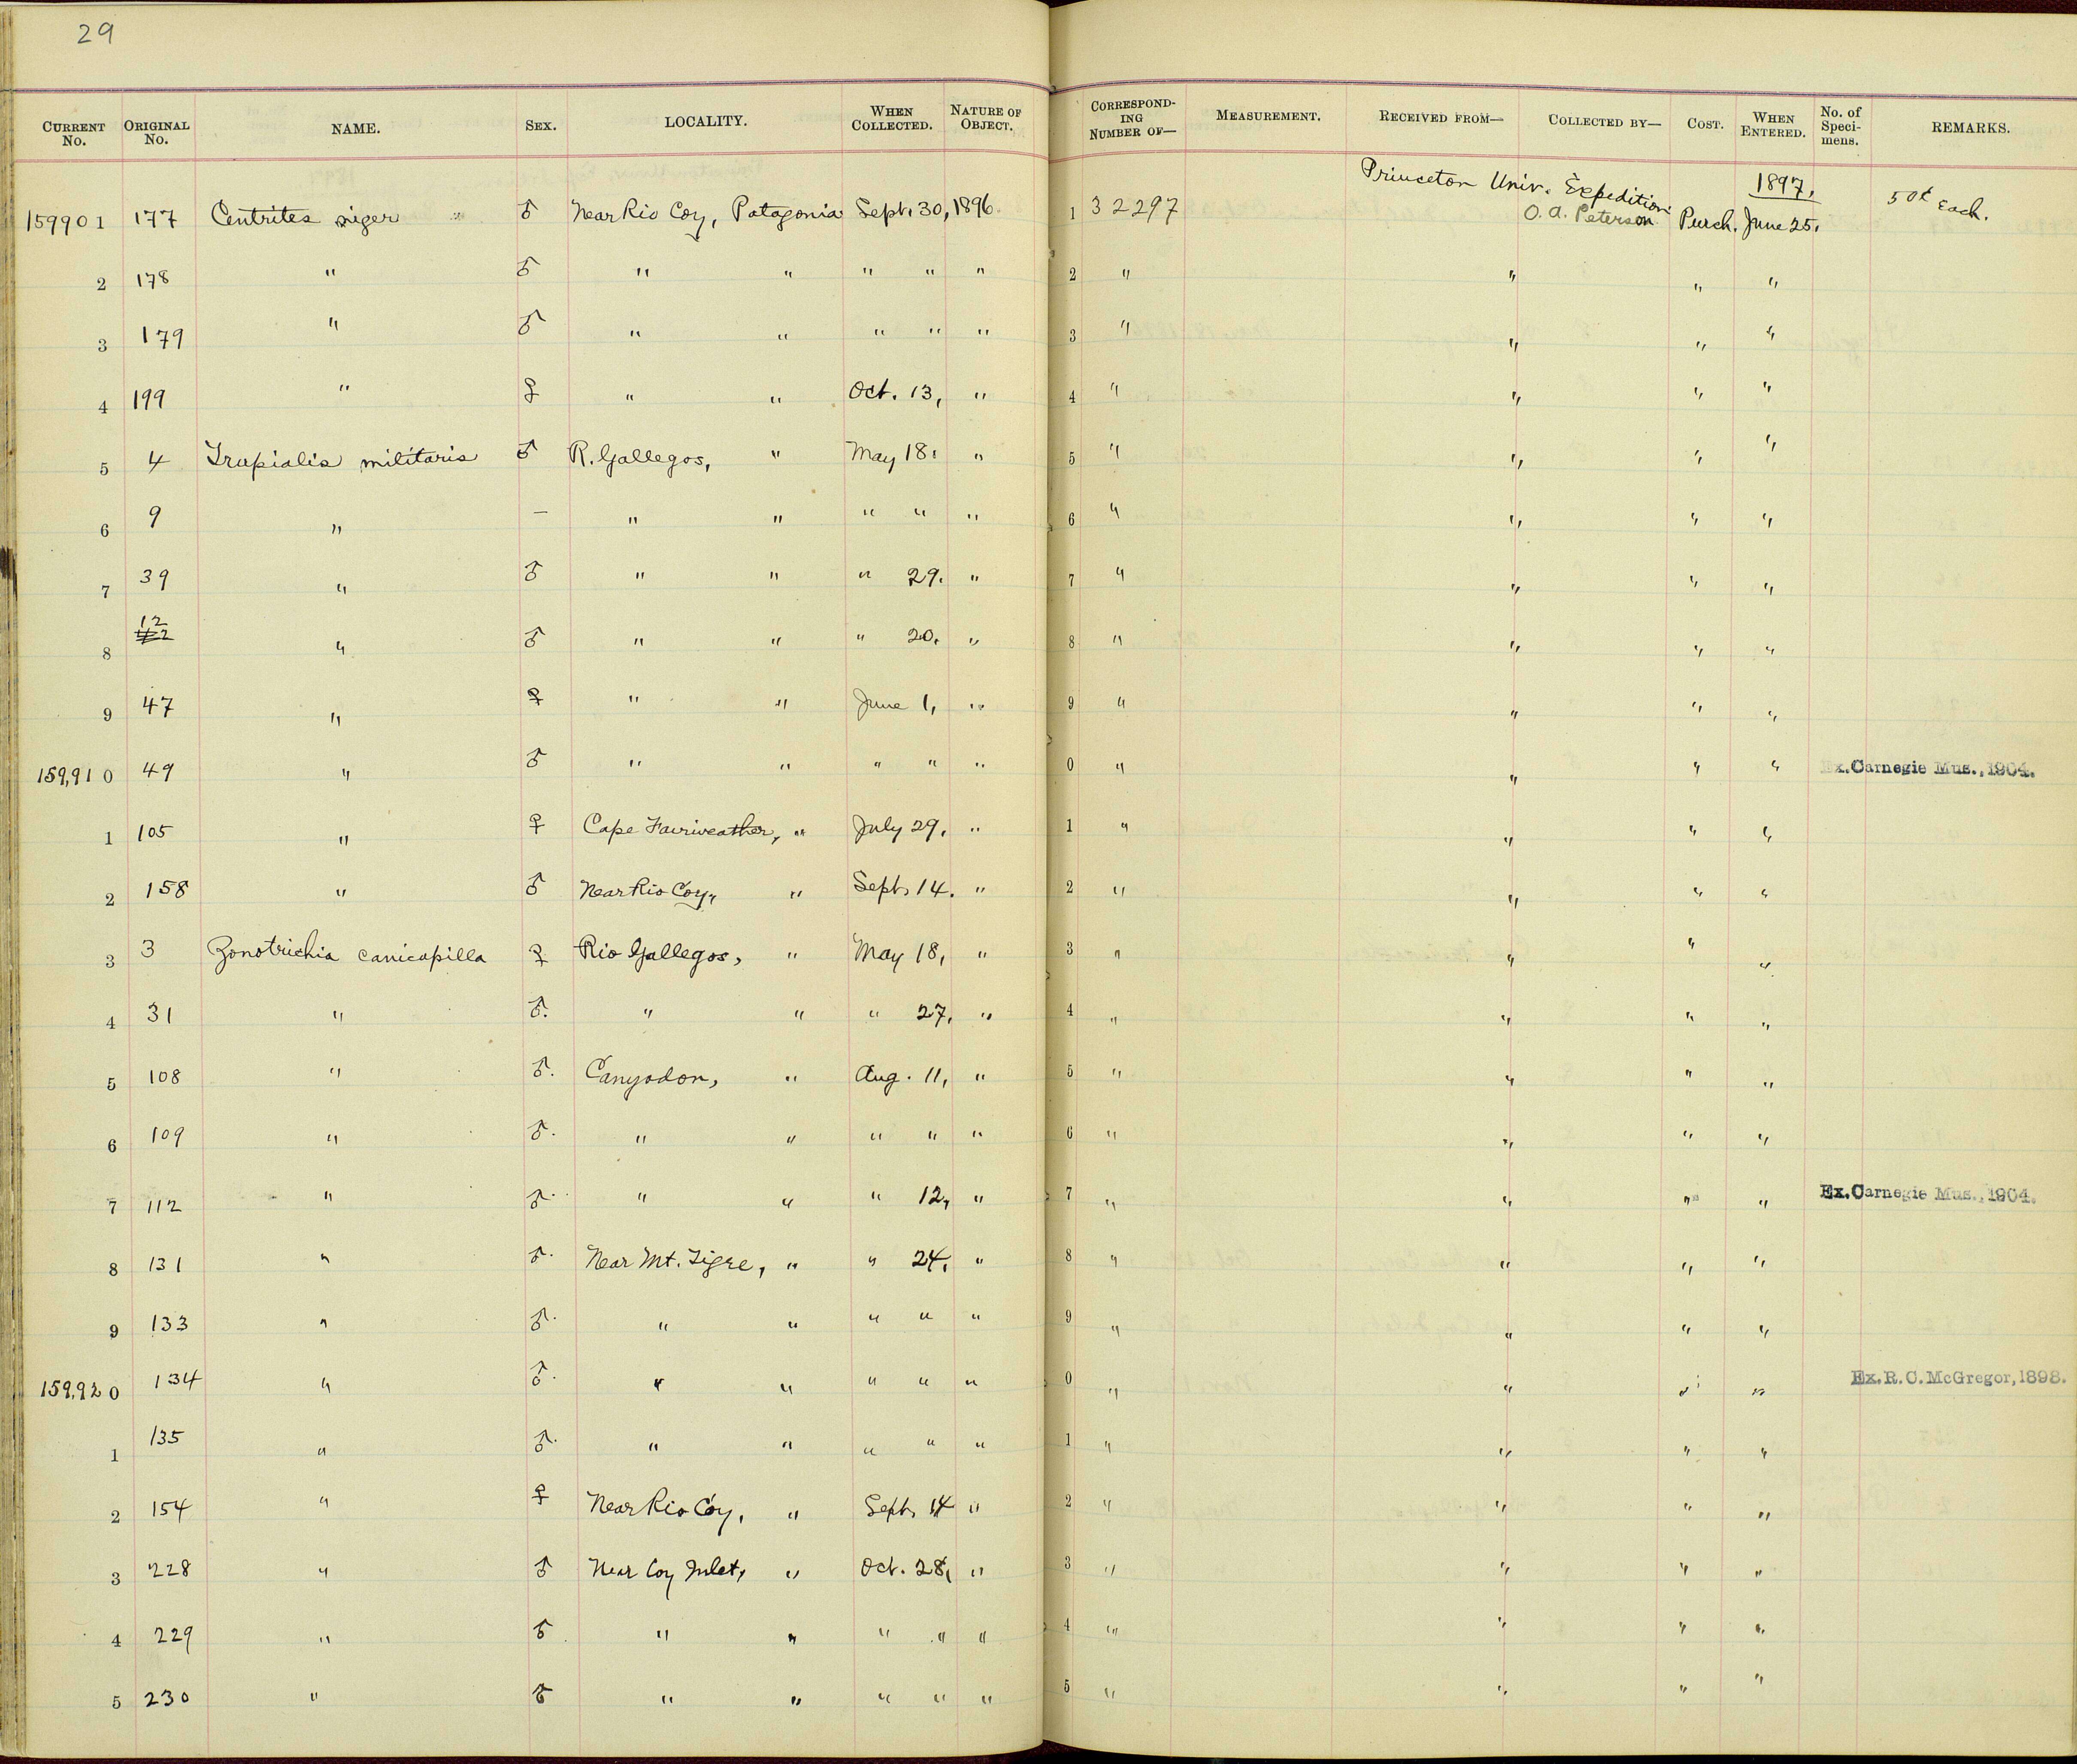 29
CURRENT No. ORIGINAL No. NAME. SEX. LOCALITY. WHEN COLLECTED. NATURE OF OBJECT. CORRESPONDING NUMBER OF— MEASUREMENT. RECEIVED FROM— COLLECTED BY— COST. WHEN ENTERED. No. of Specimens. REMARKS.
Princeton Univ. Expedition 1897,
159901 177 Centrites niger " ♂ Near Rio Coy, Patagonia Sept. 30, 1896 1 32297 O. A. Peterson Purch. June 25, 50¢ Each.
2 178 " ♂ " " " " " 2 " " " "
3 179 " ♂ " " " " " 3 " " " "
4 199 " ♀ " " Oct. 13, " 4 " " " "
5 4 Trupialis militaris ♂ R. Gallegos, " May 18, " 5 " " " "
6 9 " — " " " " " 6 " " " "
7 39 " ♂ " " " 29. " 7 " " " "
8 12 " ♂ " " " 20, " 8 " " " "
9 47 " ♀ " " June 1, " 9 " " " "
159,910 49 " ♂ " " " " " 0 " " " " Ex. Carnegie Mus., 1904.
1 105 " ♀ Cape Fairweather, " July 29, " 1 " " " "
2 158 " ♂ Near Rio Coy, " Sept. 14. " 2 " " " "
3 3 Zonotrichia canicapilla ♀ Rio Gallegos, " May 18, " 3 " " " "
4 31 " ♂. " " " 27, " 4 " " " "
5 108 " ♂. Canyodon, " Aug. 11, " 5 " " " "
6 109 " ♂. " " " " " 6 " " " "
7 112 " ♂. " " " 12, " 7 " " " " Ex. Carnegie Mus., 1904.
8 131 " ♂. Near Mt. Tigre, " " 24, " 8 " " " "
9 133 " ♂. " " " " " 9 " " " "
159,920 134 " ♂. " " " " " 0 " " " " Ex. R. C. McGregor, 1898.
1 135 " ♂. " " " " " 1 " " " "
2 154 " ♀ Near Rio Coy, " Sept. 14 " 2 " " " "
3 228 " ♂ Near Coy Inlet, " Oct. 28, " 3 " " " "
4 229 " ♂ " " " " " 4 " " " "
5 230 " ♂ " " " " " 5 " " " "